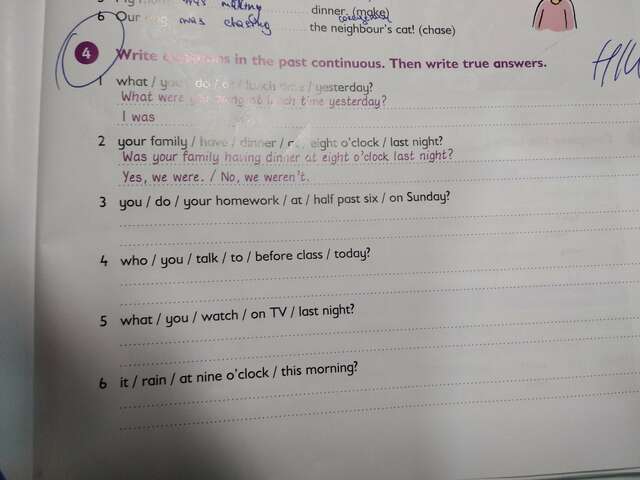 was making dinner. (make)
6 Our was chasing the neighbour's cat! (chase)
4 Write in the past continuous. Then write true answers.
1 what / you / do / at / lunch time / yesterday?
What were you doing at lunch time yesterday?
I was
2 your family / have / dinner / eight o'clock / last night?
Was your family having dinner at eight o'clock last night?
Yes, we were. / No, we weren't.
3 you / do / your homework / at / half past six / on Sunday?
4 who / you / talk / to / before class / today?
5 what / you / watch / on TV / last night?
6 it / rain / at nine o'clock / this morning?